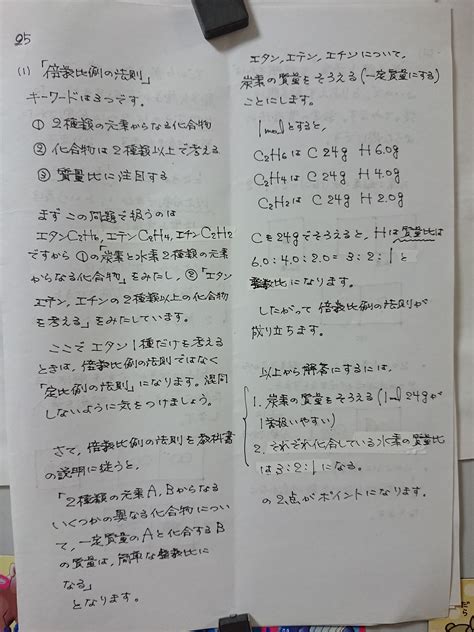 25
(1) 「倍数比例の法則」
キーワードは3つです.
① 2種類の元素からなる化合物
② 化合物は2種類以上で考える
③ 質量比に注目する
まず この問題で扱うのは
エタンC2H6, エテンC2H4, エチンC2H2
ですから ①の「炭素と水素2種類の元素
からなる化合物」をみたし, ②「エタン
エテン, エチンの2種類以上の化合物
を考える」をみたしています.
ここで エタン1種だけを考える
ときは, 倍数比例の法則ではなく
「定比例の法則」になります. 混同
しないように気をつけましょう.
さて, 倍数比例の法則を教科書
の説明に従うと,
「2種類の元素A, Bからなる
いくつかの異なる化合物につい
て, 一定質量のAと化合するB
の質量は, 簡単な整数比に
なる」
となります.
エタン, エテン, エチンについて,
炭素の質量をそろえる(一定質量にする)
ことにします.
1molとすると,
C2H6は C 24g H 6.0g
C2H4は C 24g H 4.0g
C2H2は C 24g H 2.0g
Cを24gでそろえると, Hは質量比は
6.0:4.0:2.0=3:2:1と
整数比になります.
したがって 倍数比例の法則が
成り立ちます.
以上から解答にするには,
1. 炭素の質量をそろえる(1mol 24gが
1番扱いやすい)
2. それぞれ化合している水素の質量比
は3:2:1になる.
の2点がポイントになります.
だら